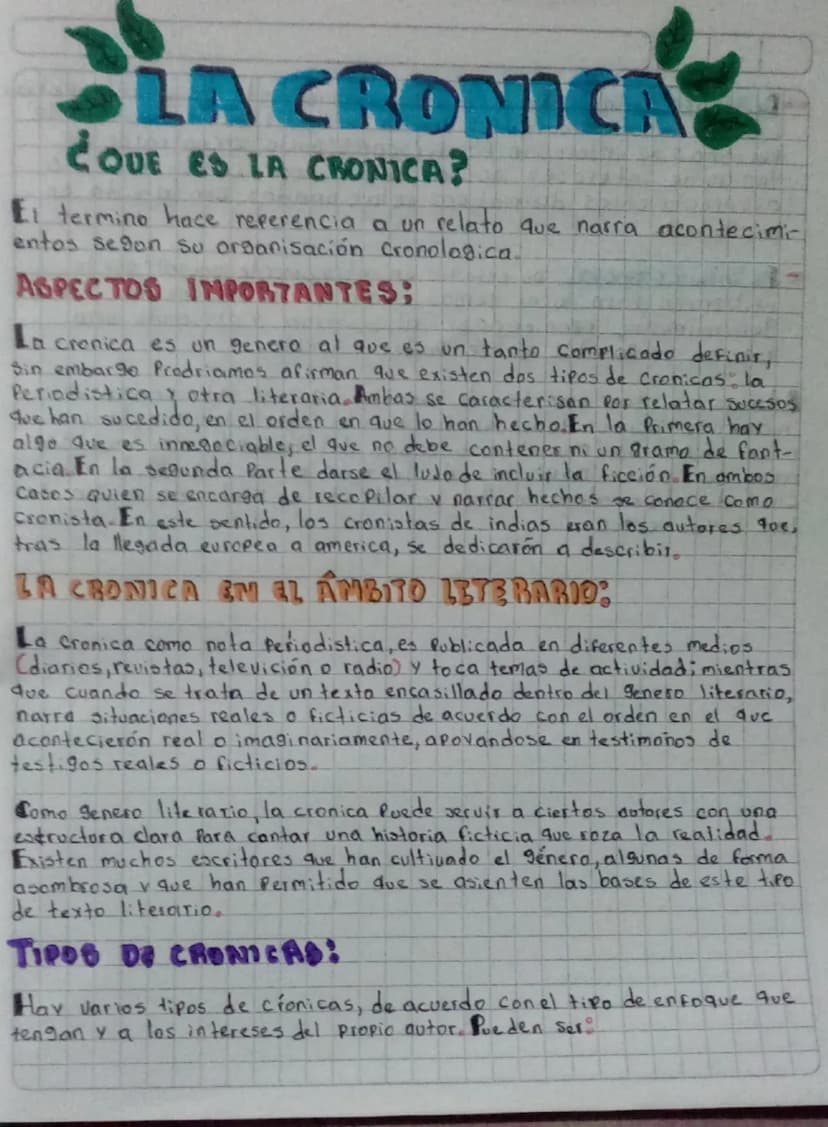 LA CRONICA
¿QUE ES LA CRONICA?
El termino hace referencia a un relato que narra acontecimi-
entos segun su organisación cronologica.
ASPECTOS IMPORTANTES:
La cronica es un genero al que es un tanto complicado definir,
sin embargo Prodriamos afirman que existen dos tipos de cronicas: la
Periodistica y otra literaria. Ambas se caracterisan por relatar sucesos
que han sucedido, en el orden en que lo han hecho. En la Primera hay
algo que es innegociable, el que no debe contener ni un gramo de fant-
acia. En la segunda Parte darse el lujo de incluir la ficción. En ambos
casos quien se encarga de recopilar y narrar hechos se conoce como
cronista. En este sentido, los cronistas de indias eran los autores que,
tras la llegada europea a america, se dedicarón a describir.
LA CRONICA EN EL ÁMBITO LITERARIO:
La cronica como nota periodistica, es publicada en diferentes medios
(diarios, revistas, televición o radio) y toca temas de actividad; mientras
que cuando se trata de un texto encasillado dentro del genero literario,
narra situaciones reales o ficticias de acuerdo con el orden en el que
acontecierón real o imaginariamente, apoyandose en testimonos de
testigos reales o ficticios.
Como genero literario, la cronica Puede servir a ciertos autores con una
estructura clara Para contar una historia ficticia que roza la realidad.
Existen muchos escritores que han cultivado el género, algunas de forma
asombrosa y que han Permitido que se asienten las bases de este tipo
de texto literario.
TIPOS DE CRONICAS:
Hay varios tipos de crónicas, de acuerdo con el tipo de enfoque que
tengan y a los intereses del propio autor. Pueden ser: